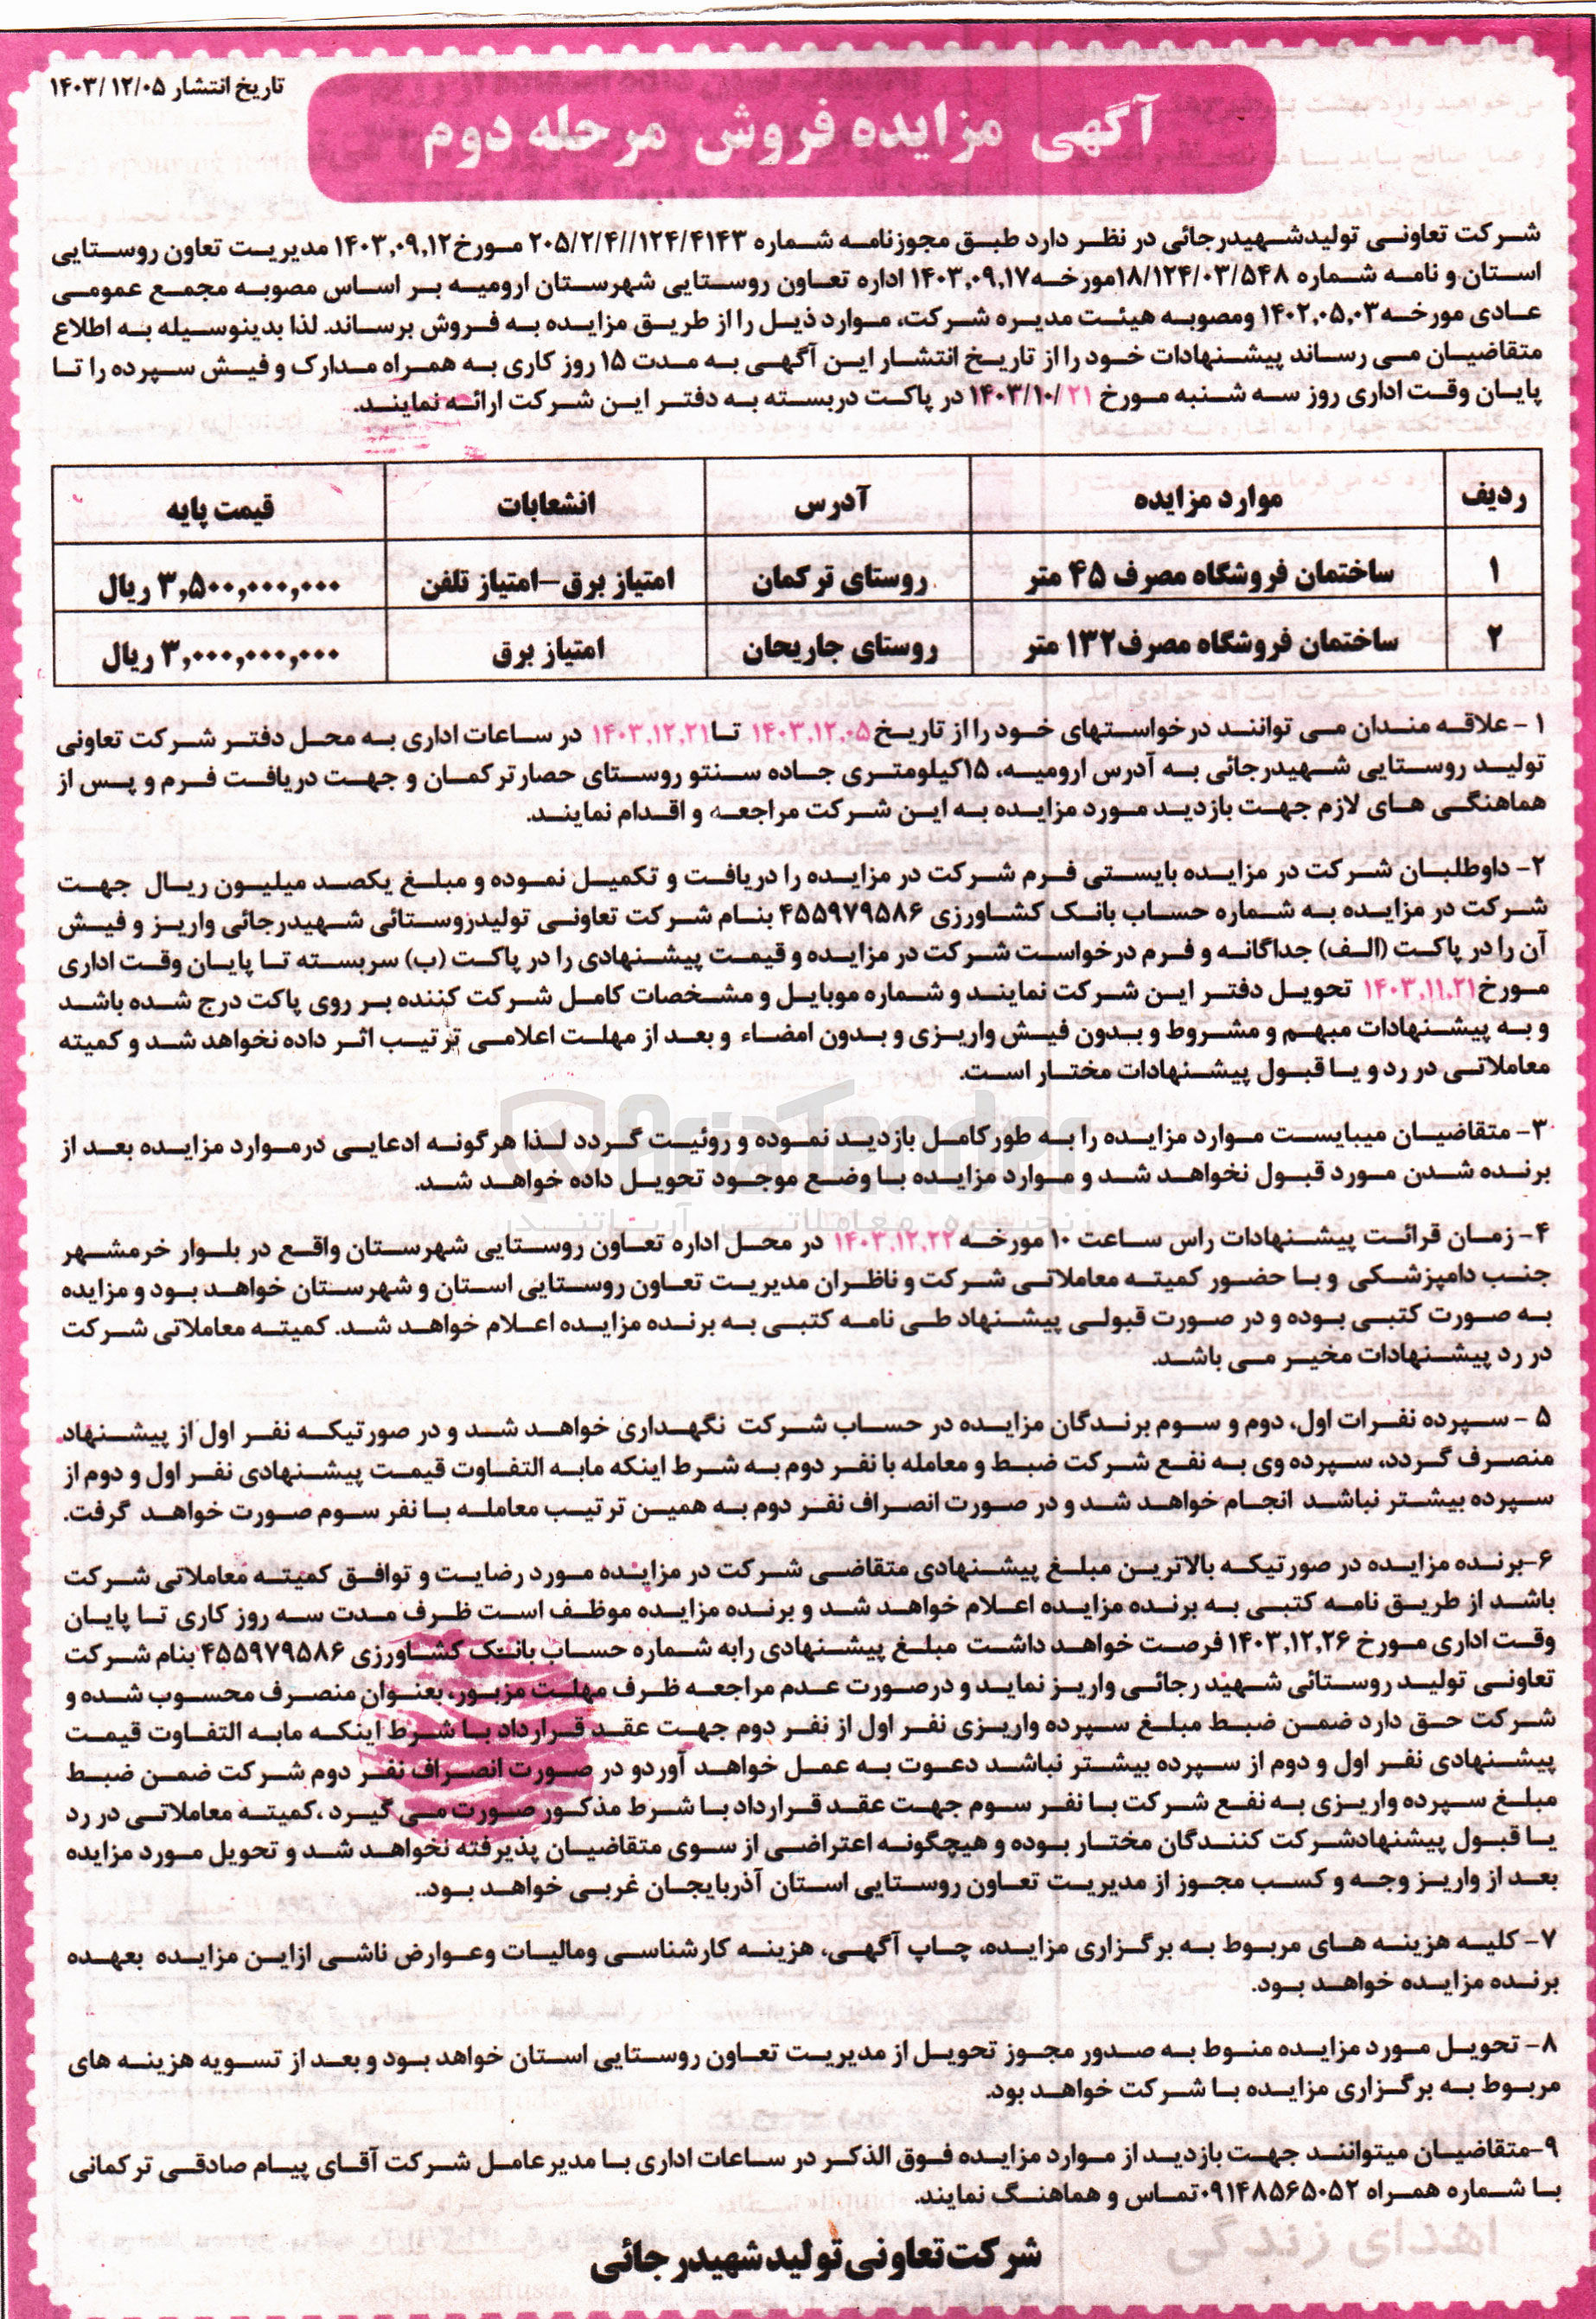 تاریخ انتشار ۱۴۰۳/۱۲/۰۵
آگهی مزایده فروش مرحله دوم
شرکت تعاونی تولیدشهیدرجائی در نظر دارد طبق مجوزنامه شماره ۲۰۵/۲/۴//۱۲۴/۴۱۴۳ مورخ۱۴۰۳,۰۹,۱۲ مدیریت تعاون روستایی
استان و نامه شماره ۱۸/۱۲۴/۰۳/۵۴۸مورخه۱۴۰۳,۰۹,۱۷ اداره تعاون روستایی شهرستان ارومیه بر اساس مصوبه مجمع عمومی
عادی مورخه۱۴۰۲,۰۵,۰۳ ومصوبه هیئت مدیره شرکت، موارد ذیل را از طریق مزایده به فروش برساند. لذا بدینوسیله به اطلاع
متقاضیان می رساند پیشنهادات خود را از تاریخ انتشار این آگهی به مدت ۱۵ روز کاری به همراه مدارک و فیش سپرده را تا
پایان وقت اداری روز سه شنبه مورخ ۱۴۰۳/۱۰/۲۱ در پاکت دربسته به دفتر این شرکت ارائه نمایند.
ردیف موارد مزایده آدرس انشعابات قیمت پایه
۱ ساختمان فروشگاه مصرف ۴۵ متر روستای ترکمان امتیاز برق-امتیاز تلفن ۳,۵۰۰,۰۰۰,۰۰۰ ریال
۲ ساختمان فروشگاه مصرف۱۳۲ متر روستای جاریحان امتیاز برق ۳,۰۰۰,۰۰۰,۰۰۰ ریال
۱ - علاقه مندان می توانند درخواستهای خود را از تاریخ۱۴۰۳,۱۲,۰۵ تا۱۴۰۳,۱۲,۲۱ در ساعات اداری به محل دفتر شرکت تعاونی
تولید روستایی شهیدرجائی به آدرس ارومیه، ۱۵کیلومتری جاده سنتو روستای حصارترکمان و جهت دریافت فرم و پس از
هماهنگی های لازم جهت بازدید مورد مزایده به این شرکت مراجعه و اقدام نمایند.
۲- داوطلبان شرکت در مزایده بایستی فرم شرکت در مزایده را دریافت و تکمیل نموده و مبلغ یکصد میلیون ریال جهت
شرکت در مزایده به شماره حساب بانک کشاورزی ۴۵۵۹۷۹۵۸۶ بنام شرکت تعاونی تولیدروستائی شهیدرجائی واریز و فیش
آن را در پاکت (الف) جداگانه و فرم درخواست شرکت در مزایده و قیمت پیشنهادی را در پاکت (ب) سربسته تا پایان وقت اداری
مورخ۱۴۰۳,۱۱,۲۱ تحویل دفتر این شرکت نمایند و شماره موبایل و مشخصات کامل شرکت کننده بر روی پاکت درج شده باشد
و به پیشنهادات مبهم و مشروط و بدون فیش واریزی و بدون امضاء و بعد از مهلت اعلامی ترتیب اثر داده نخواهد شد و کمیته
معاملاتی در رد و یا قبول پیشنهادات مختار است.
AriaTender
زنجیره معاملاتی آریاتندر
۳- متقاضیان میبایست موارد مزایده را به طورکامل بازدید نموده و روئیت گردد لذا هرگونه ادعایی درموارد مزایده بعد از
برنده شدن مورد قبول نخواهد شد و موارد مزایده با وضع موجود تحویل داده خواهد شد.
۴- زمان قرائت پیشنهادات راس ساعت ۱۰ مورخه۱۴۰۳,۱۲,۲۲ در محل اداره تعاون روستایی شهرستان واقع در بلوار خرمشهر
جنب دامپزشکی و با حضور کمیته معاملاتی شرکت و ناظران مدیریت تعاون روستایی استان و شهرستان خواهد بود و مزایده
به صورت کتبی بوده و در صورت قبولی پیشنهاد طی نامه کتبی به برنده مزایده اعلام خواهد شد. کمیته معاملاتی شرکت
در رد پیشنهادات مخیر می باشد.
۵ - سپرده نفرات اول، دوم و سوم برندگان مزایده در حساب شرکت نگهداری خواهد شد و در صورتیکه نفر اول از پیشنهاد
منصرف گردد، سپرده وی به نفع شرکت ضبط و معامله با نفر دوم به شرط اینکه مابه التفاوت قیمت پیشنهادی نفر اول و دوم از
سپرده بیشتر نباشد انجام خواهد شد و در صورت انصراف نفر دوم به همین ترتیب معامله با نفر سوم صورت خواهد گرفت.
۶-برنده مزایده در صورتیکه بالاترین مبلغ پیشنهادی متقاضی شرکت در مزایده مورد رضایت و توافق کمیته معاملاتی شرکت
باشد از طریق نامه کتبی به برنده مزایده اعلام خواهد شد و برنده مزایده موظف است ظرف مدت سه روز کاری تا پایان
وقت اداری مورخ ۱۴۰۳,۱۲,۲۶ فرصت خواهد داشت مبلغ پیشنهادی رابه شماره حساب بانک کشاورزی ۴۵۵۹۷۹۵۸۶ بنام شرکت
تعاونی تولید روستائی شهید رجائی واریز نماید و درصورت عدم مراجعه ظرف مهلت مزبور، بعنوان منصرف محسوب شده و
شرکت حق دارد ضمن ضبط مبلغ سپرده واریزی نفر اول از نفر دوم جهت عقد قرارداد با شرط اینکه مابه التفاوت قیمت
پیشنهادی نفر اول و دوم از سپرده بیشتر نباشد دعوت به عمل خواهد آوردو در صورت انصراف نفر دوم شرکت ضمن ضبط
مبلغ سپرده واریزی به نفع شرکت با نفر سوم جهت عقد قرارداد با شرط مذکور صورت می گیرد ،کمیته معاملاتی در رد
یا قبول پیشنهادشرکت کنندگان مختار بوده و هیچگونه اعتراضی از سوی متقاضیان پذیرفته نخواهد شد و تحویل مورد مزایده
بعد از واریز وجه و کسب مجوز از مدیریت تعاون روستایی استان آذربایجان غربی خواهد بود..
۷- کلیه هزینه های مربوط به برگزاری مزایده، چاپ آگهی، هزینه کارشناسی ومالیات وعوارض ناشی ازاین مزایده بعهده
برنده مزایده خواهد بود.
۸- تحویل مورد مزایده منوط به صدور مجوز تحویل از مدیریت تعاون روستایی استان خواهد بود و بعد از تسویه هزینه های
مربوط به برگزاری مزایده با شرکت خواهد بود.
۹-متقاضیان میتوانند جهت بازدید از موارد مزایده فوق الذکر در ساعات اداری با مدیرعامل شرکت آقای پیام صادقی ترکمانی
با شماره همراه ۰۹۱۴۸۵۶۵۰۵۲تماس و هماهنگ نمایند.
شرکت تعاونی تولید شهیدرجائی